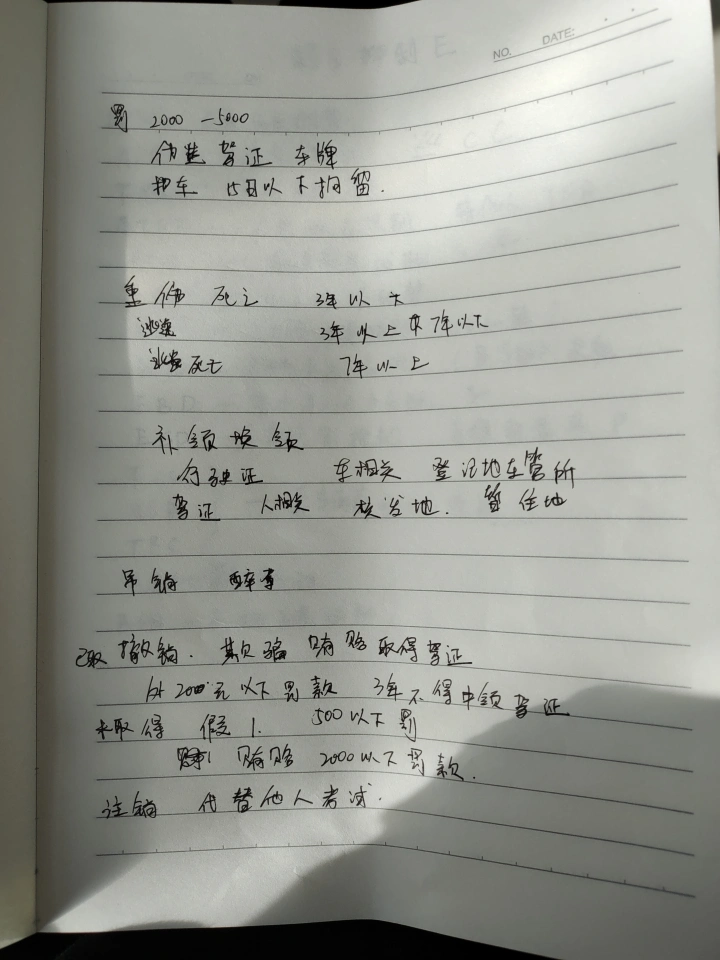 NO.
DATE:
罚 2000 -5000
伪造 驾证 车牌
扣车 15日以下拘留.
重伤 死亡 3年以下
逃逸 3年以上 7年以下
逃逸死亡 7年以上
补领换领
行驶证 车相关 登记地车管所
驾证 人相关 核发地. 暂住地
吊销 醉驾
已取 撤销. 欺骗 贿赂 取得驾证
处2000元以下罚款 3年不得申领驾证
未取得 假1. 500以下罚
贿赂 2000以下罚款.
注销 代替他人考试.